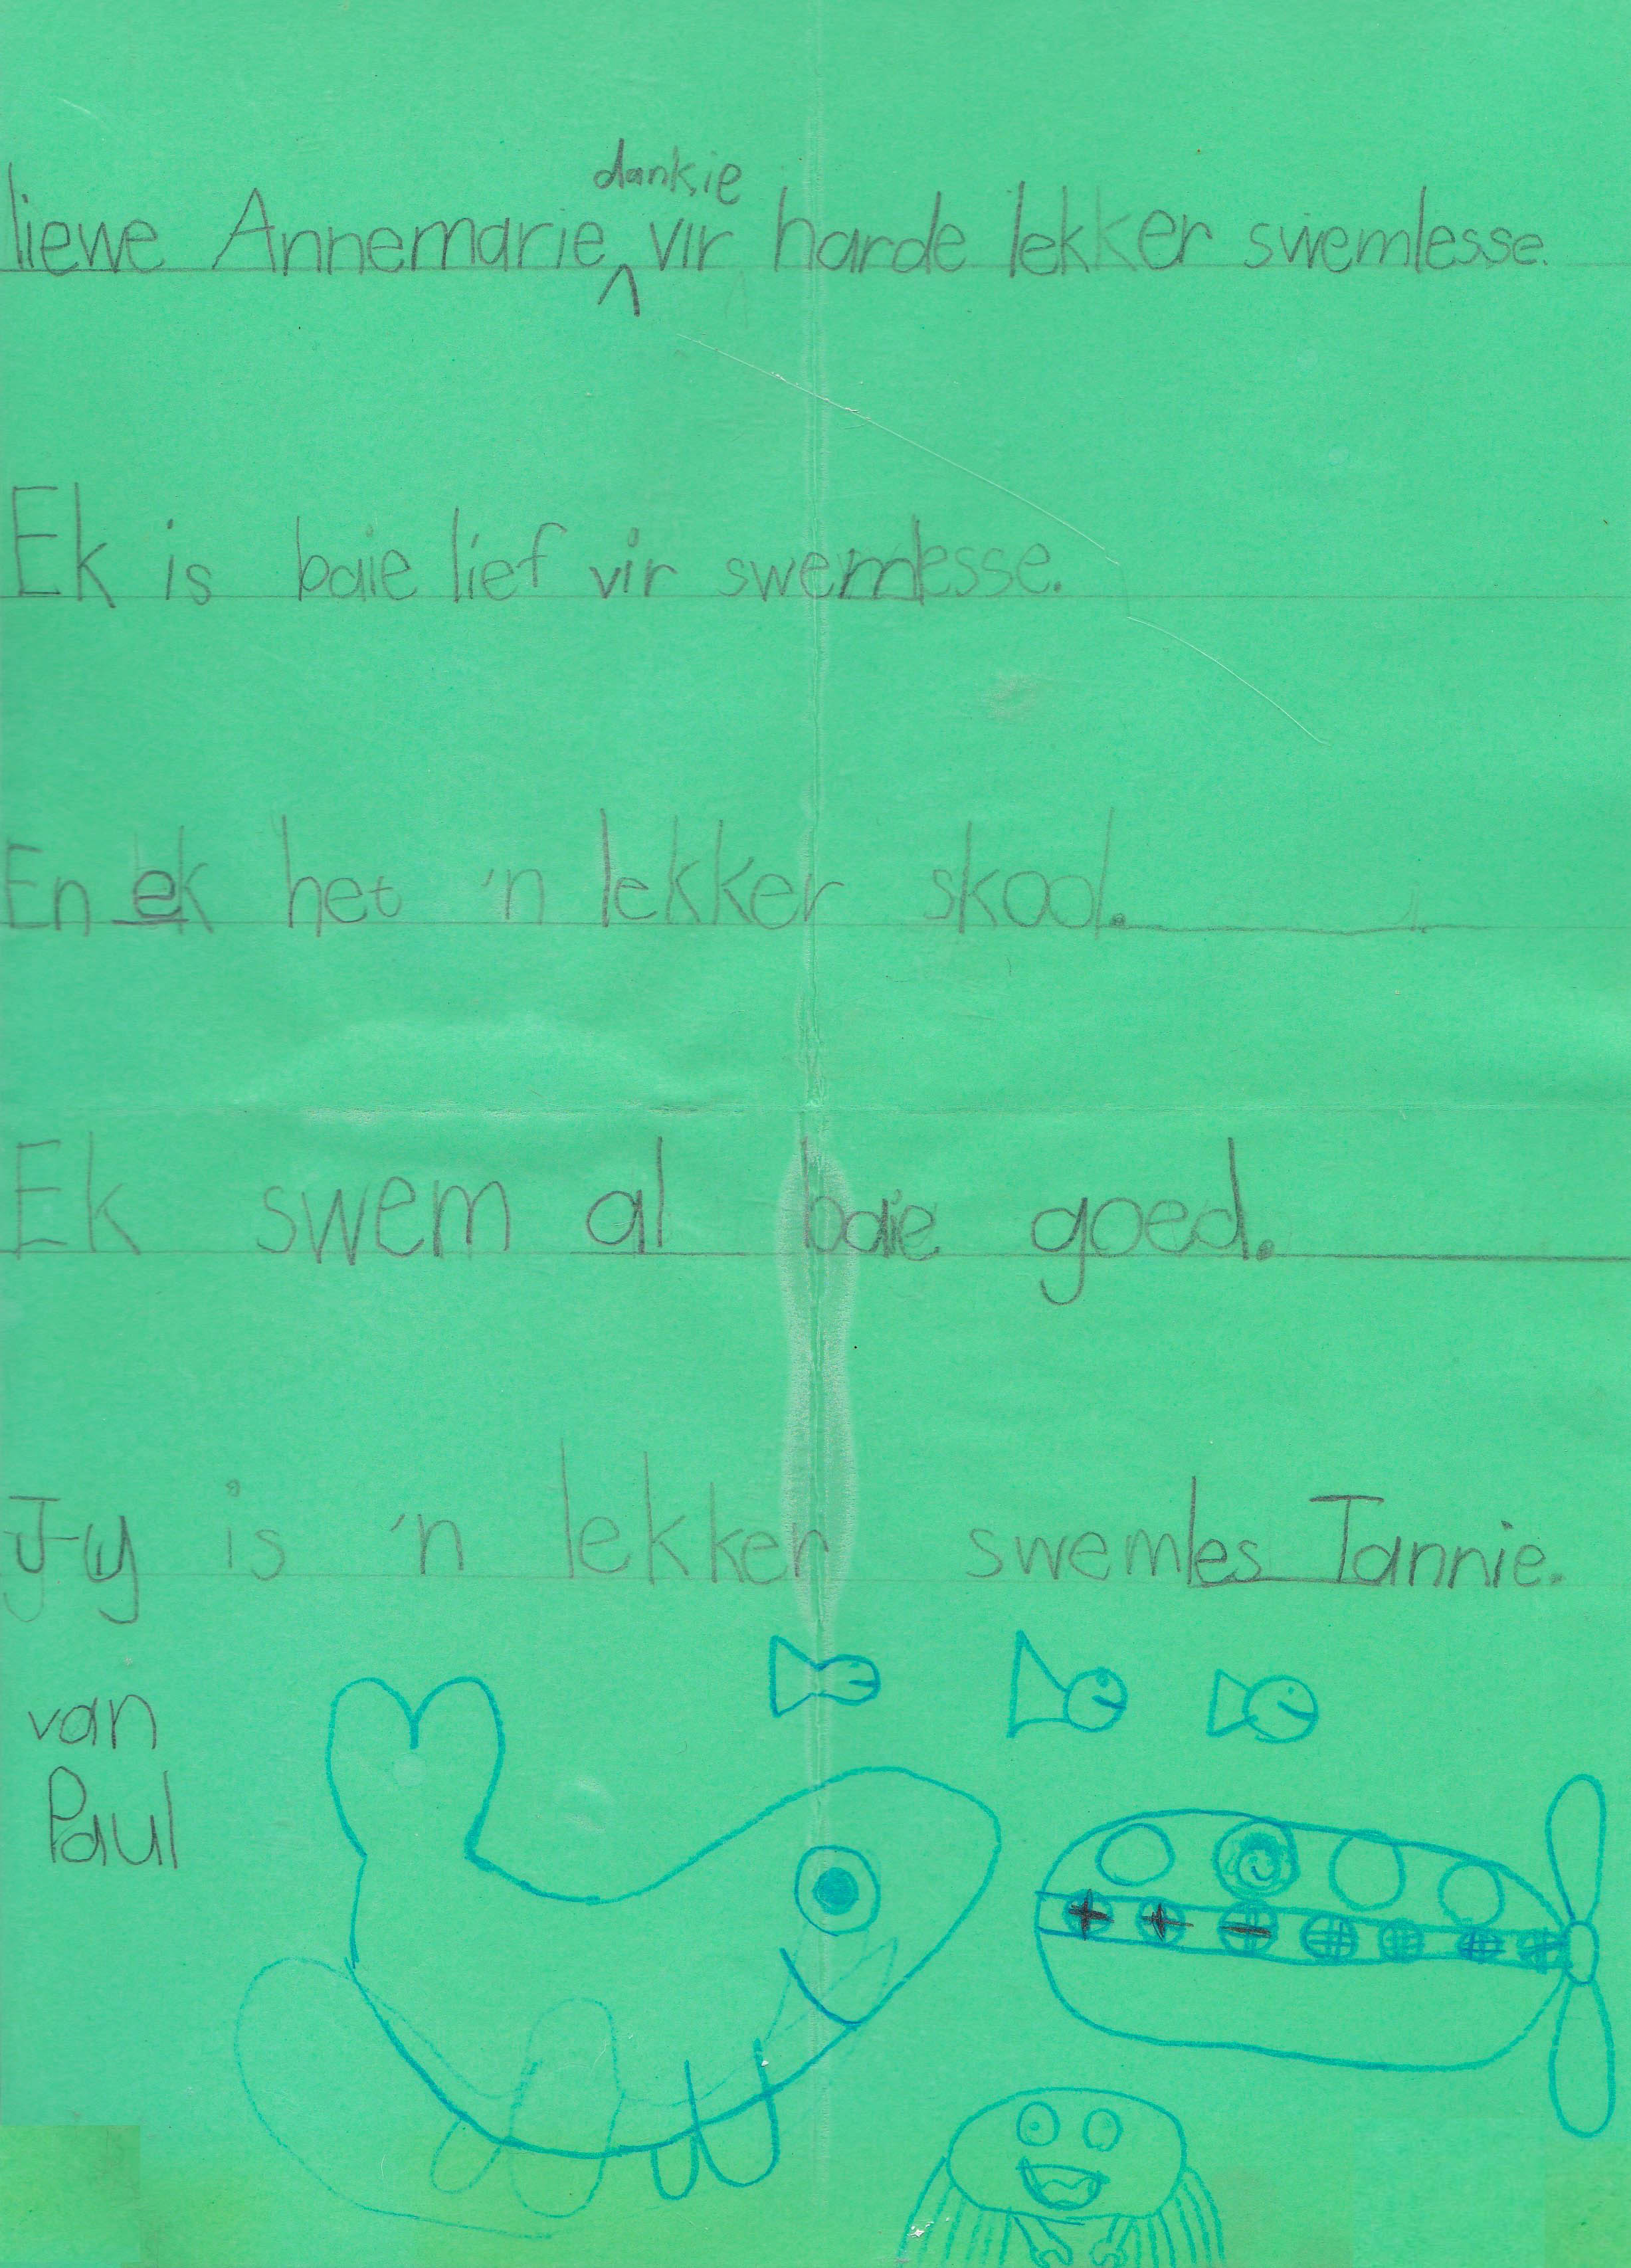 liewe Annemarie dankie vir harde lekker swemlesse.
Ek is baie lief vir swemlesse.
En ek het 'n lekker skool.
Ek swem al baie goed.
Jy is 'n lekker swemles Tannie.
van
Paul